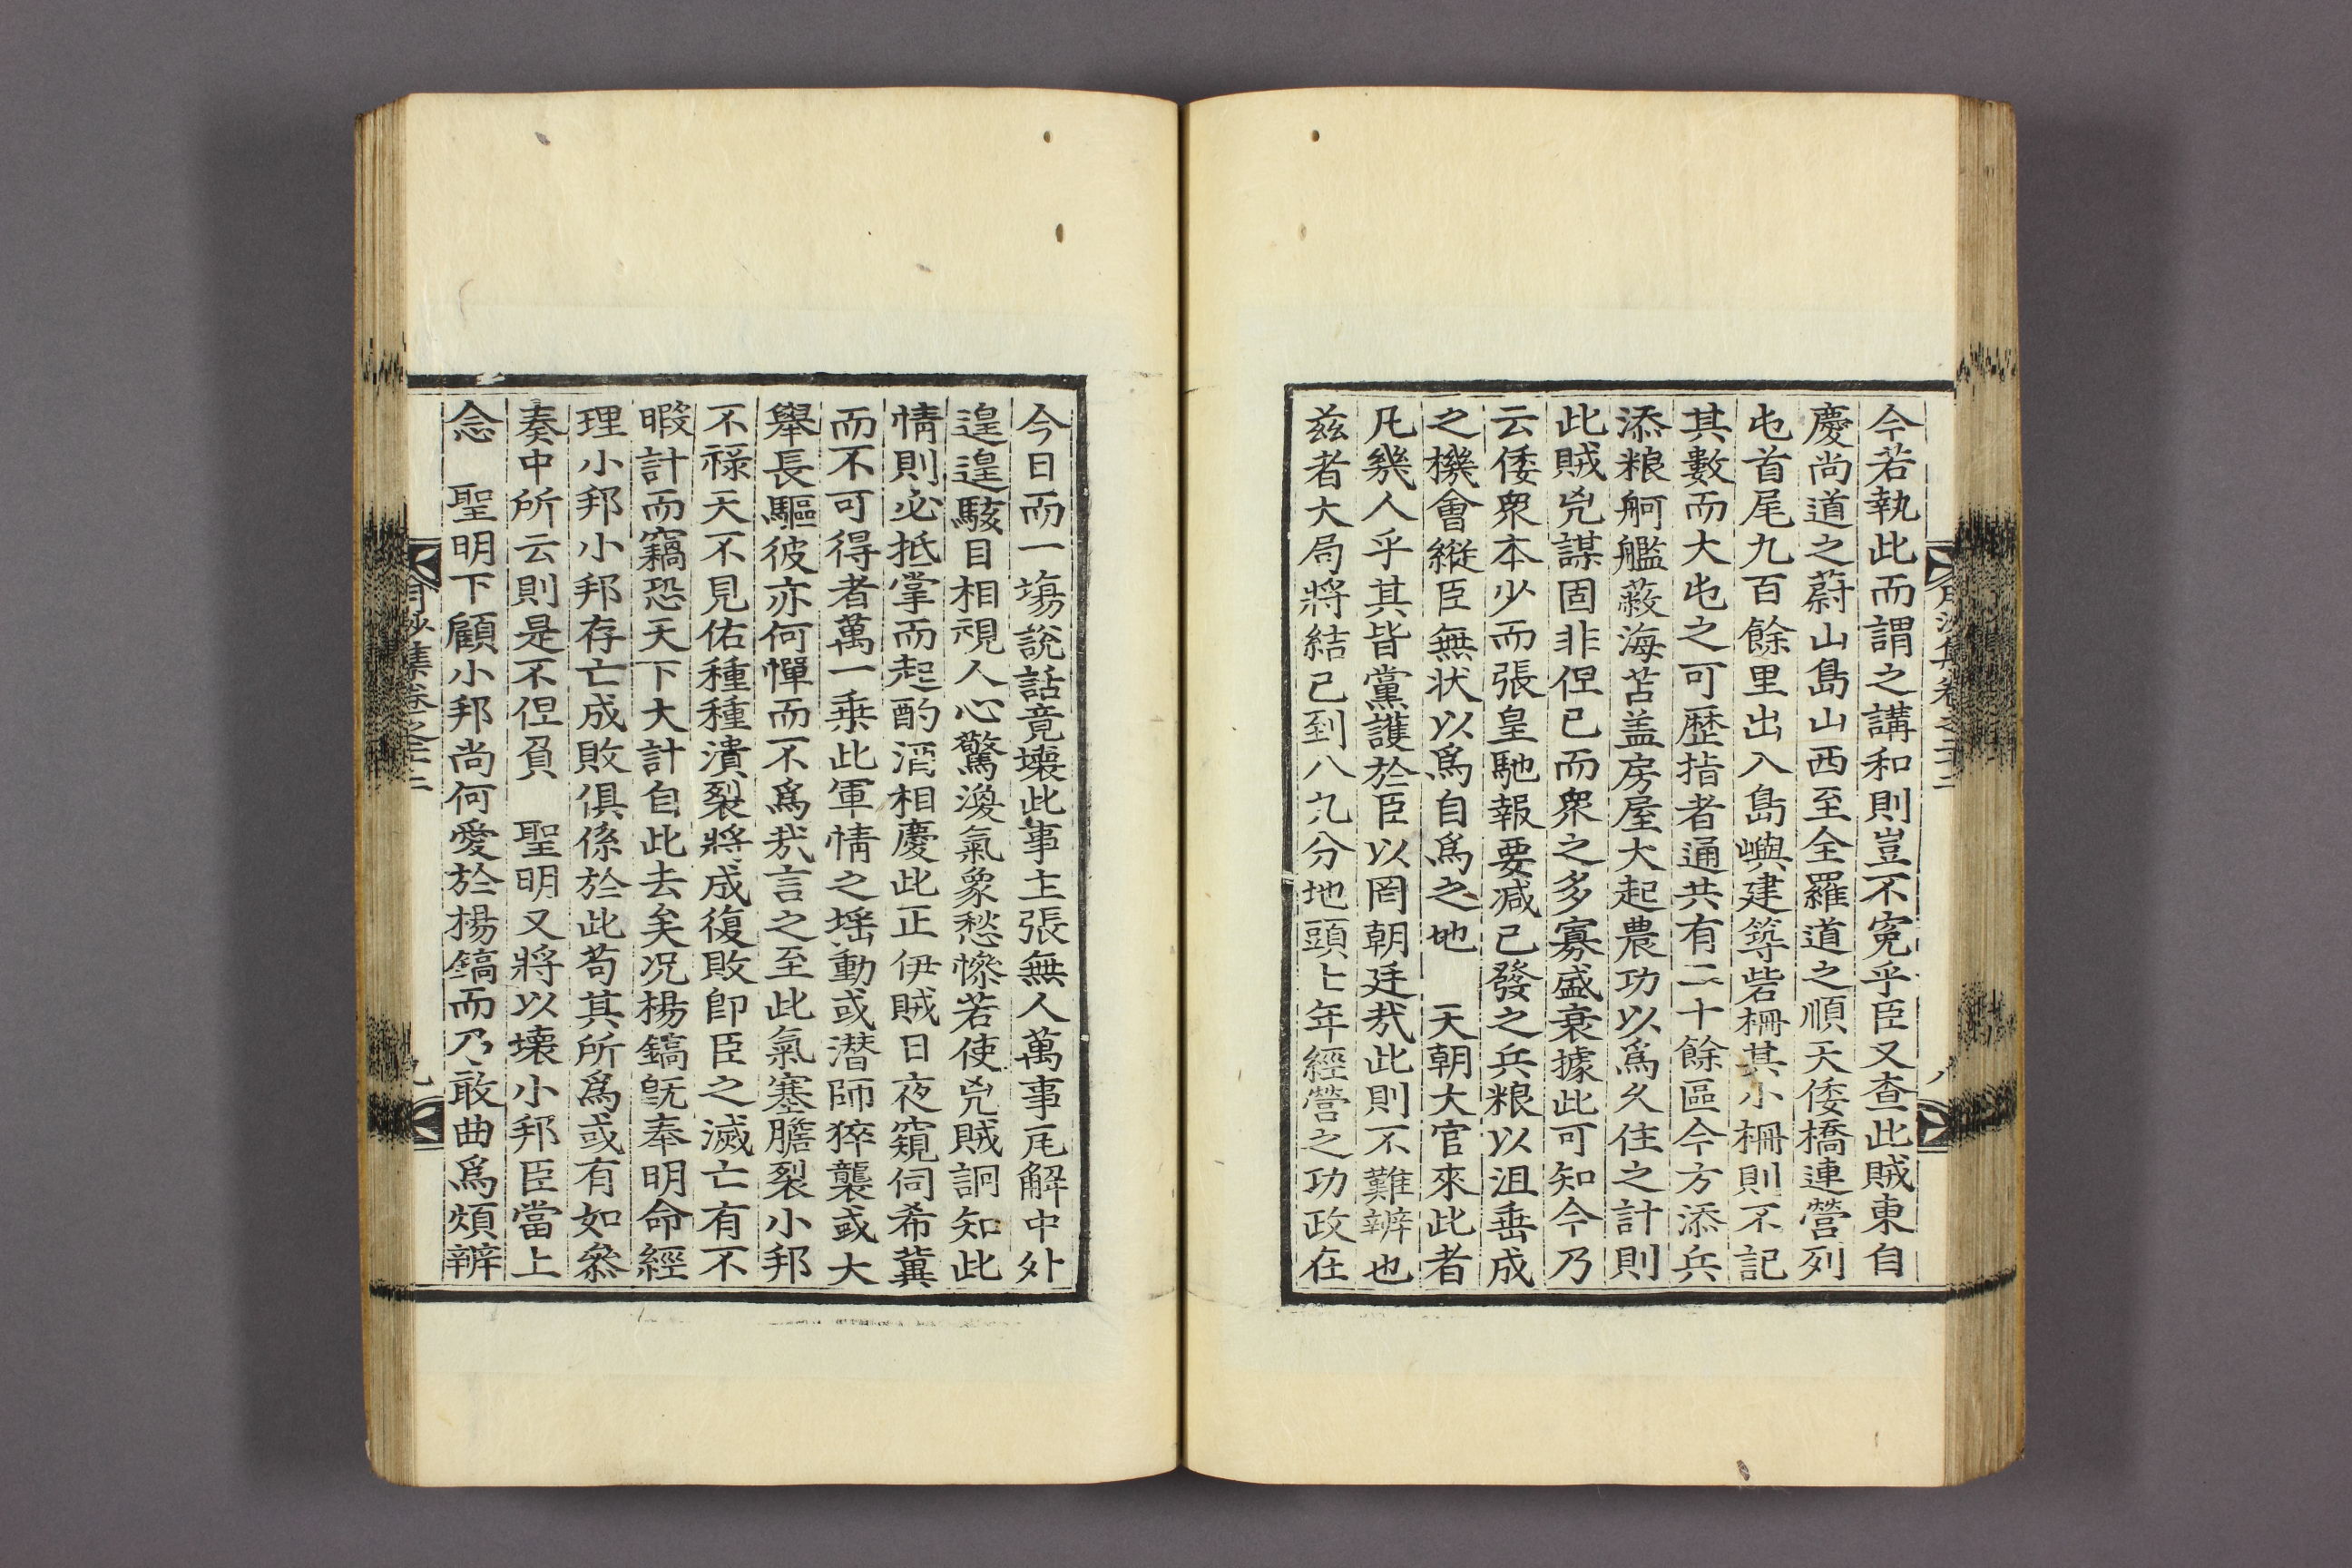 今若執此而謂之講和則豈不寃乎臣又查此賊東自
慶尚道之蔚山島山西至全羅道之順天倭橋連營列
屯首尾九百餘里出入島嶼建築砦柵其小柵則不記
其數而大屯之可歷指者通共有二十餘區今方添兵
添粮舸艦蔽海苫盖房屋大起農功以爲久住之計則
此賊兇謀固非但已而衆之多寡盛衰據此可知今乃
云倭衆本少而張皇馳報要减已發之兵粮以沮垂成
之機會縱臣無状以爲自爲之地 天朝大官來此者
凡幾人乎其皆黨護於臣以罔朝廷㢤此則不難辨也
兹者大局將結已到八九分地頭七年經營之功政在
今日而一塲說話竟壞此事主張無人萬事瓦解中外
遑遑駭目相視人心驚渙氣象愁慘若使兇賊詗知此
情則必抵掌而起酌酒相慶此正伊賊日夜窺伺希冀
而不可得者萬一乗此軍情之揺動或潜師猝襲或大
舉長驅彼亦何憚而不爲㢤言之至此氣塞膽裂小邦
不祿天不見佑種種潰裂將成復敗卽臣之滅亡有不
暇計而竊恐天下大計自此去矣况楊鎬旣奉明命經
理小邦小邦存亡成敗俱係於此苟其所爲或有如叅
奏中所云則是不但負 聖明又將以壞小邦臣當上
念 聖明下顧小邦尚何愛於楊鎬而乃敢曲爲煩辨